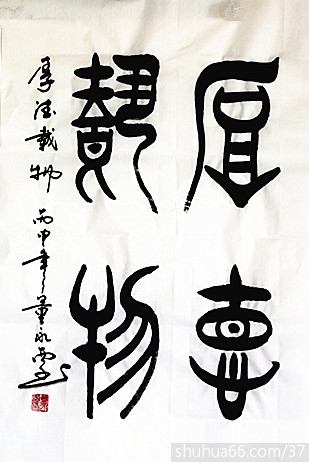 厚德
载物
厚德载物 丙申年 董永雪
shuhua66.com/37